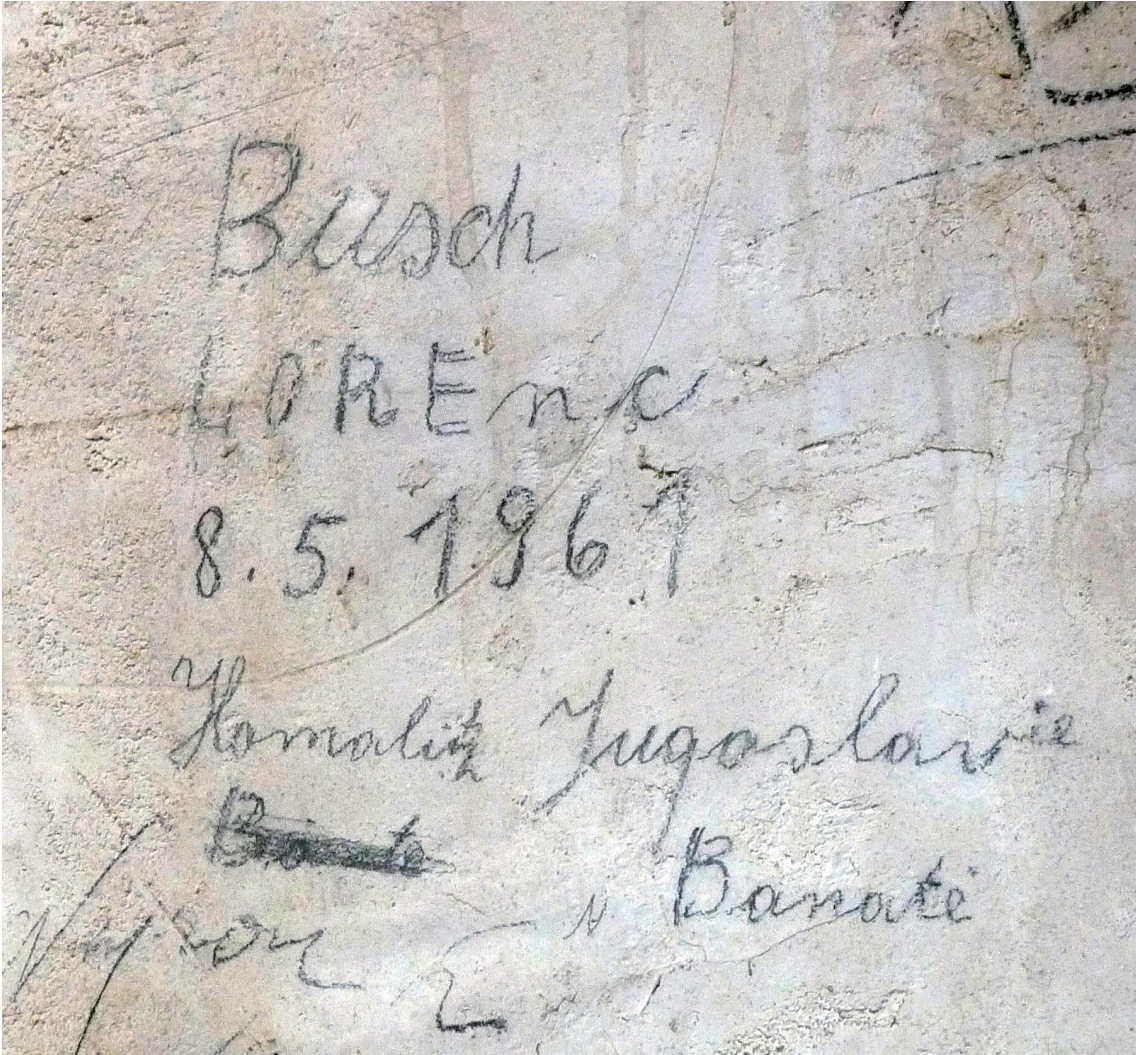 Busch
LOREnc
8.5.1961
Homolitz Jugoslavie
Banaté